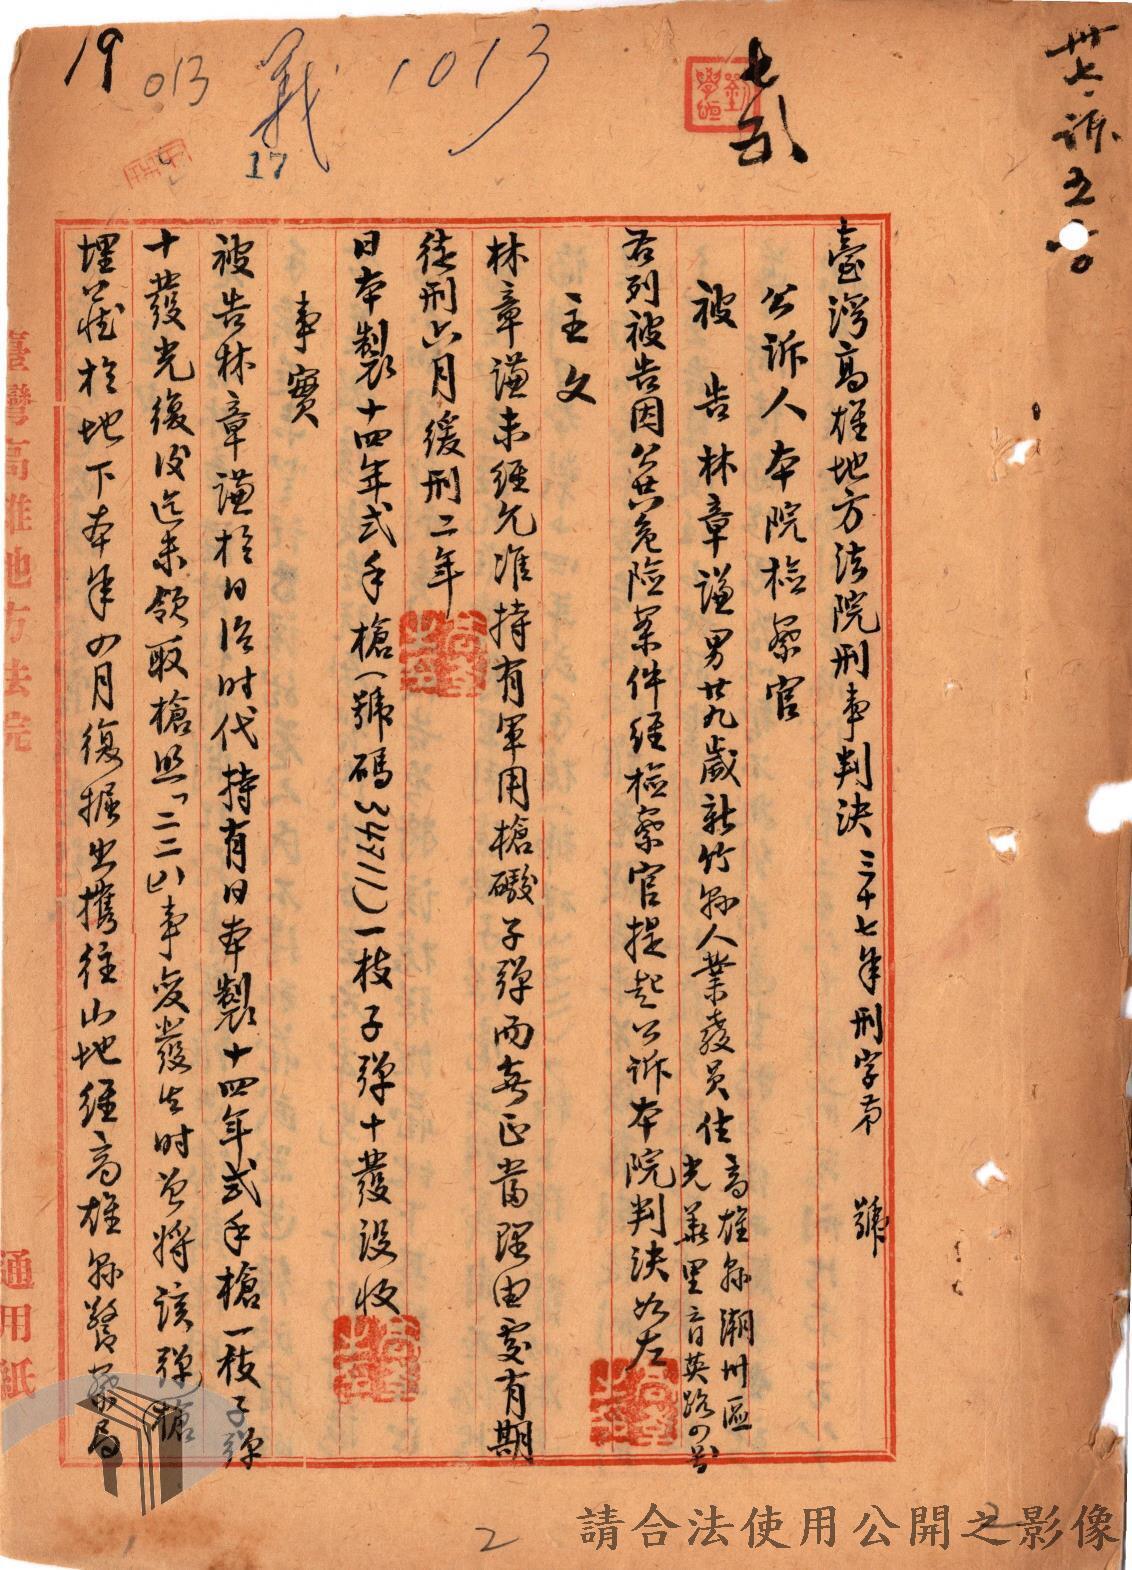 19
013
義
1013
17
七
卅七、訴五
臺灣高雄地方法院刑事判決 三十七年刑字第 號
公訴人本院檢察官
被告林章謙男廿九歲新竹縣人業教員住高雄縣潮州區
光華里育英路四号
右列被告因公共危險案件經檢察官提起公訴本院判決如左
主文
林章謙未經允准持有軍用槍礮子彈而無正當理由處有期
徒刑六月緩刑二年
日本製十四年式手槍(號碼34311)一枝子彈十發沒收
事實
被告林章謙於日治时代持有日本製十四年式手槍一枝子彈
十發光復後迄未領取槍照「二二八」事变發生时曾将該彈槍
埋藏於地下本年四月復掘出携往山地經高雄縣警察局
臺灣高雄地方法院
通用紙
2
2
請合法使用公開之影像